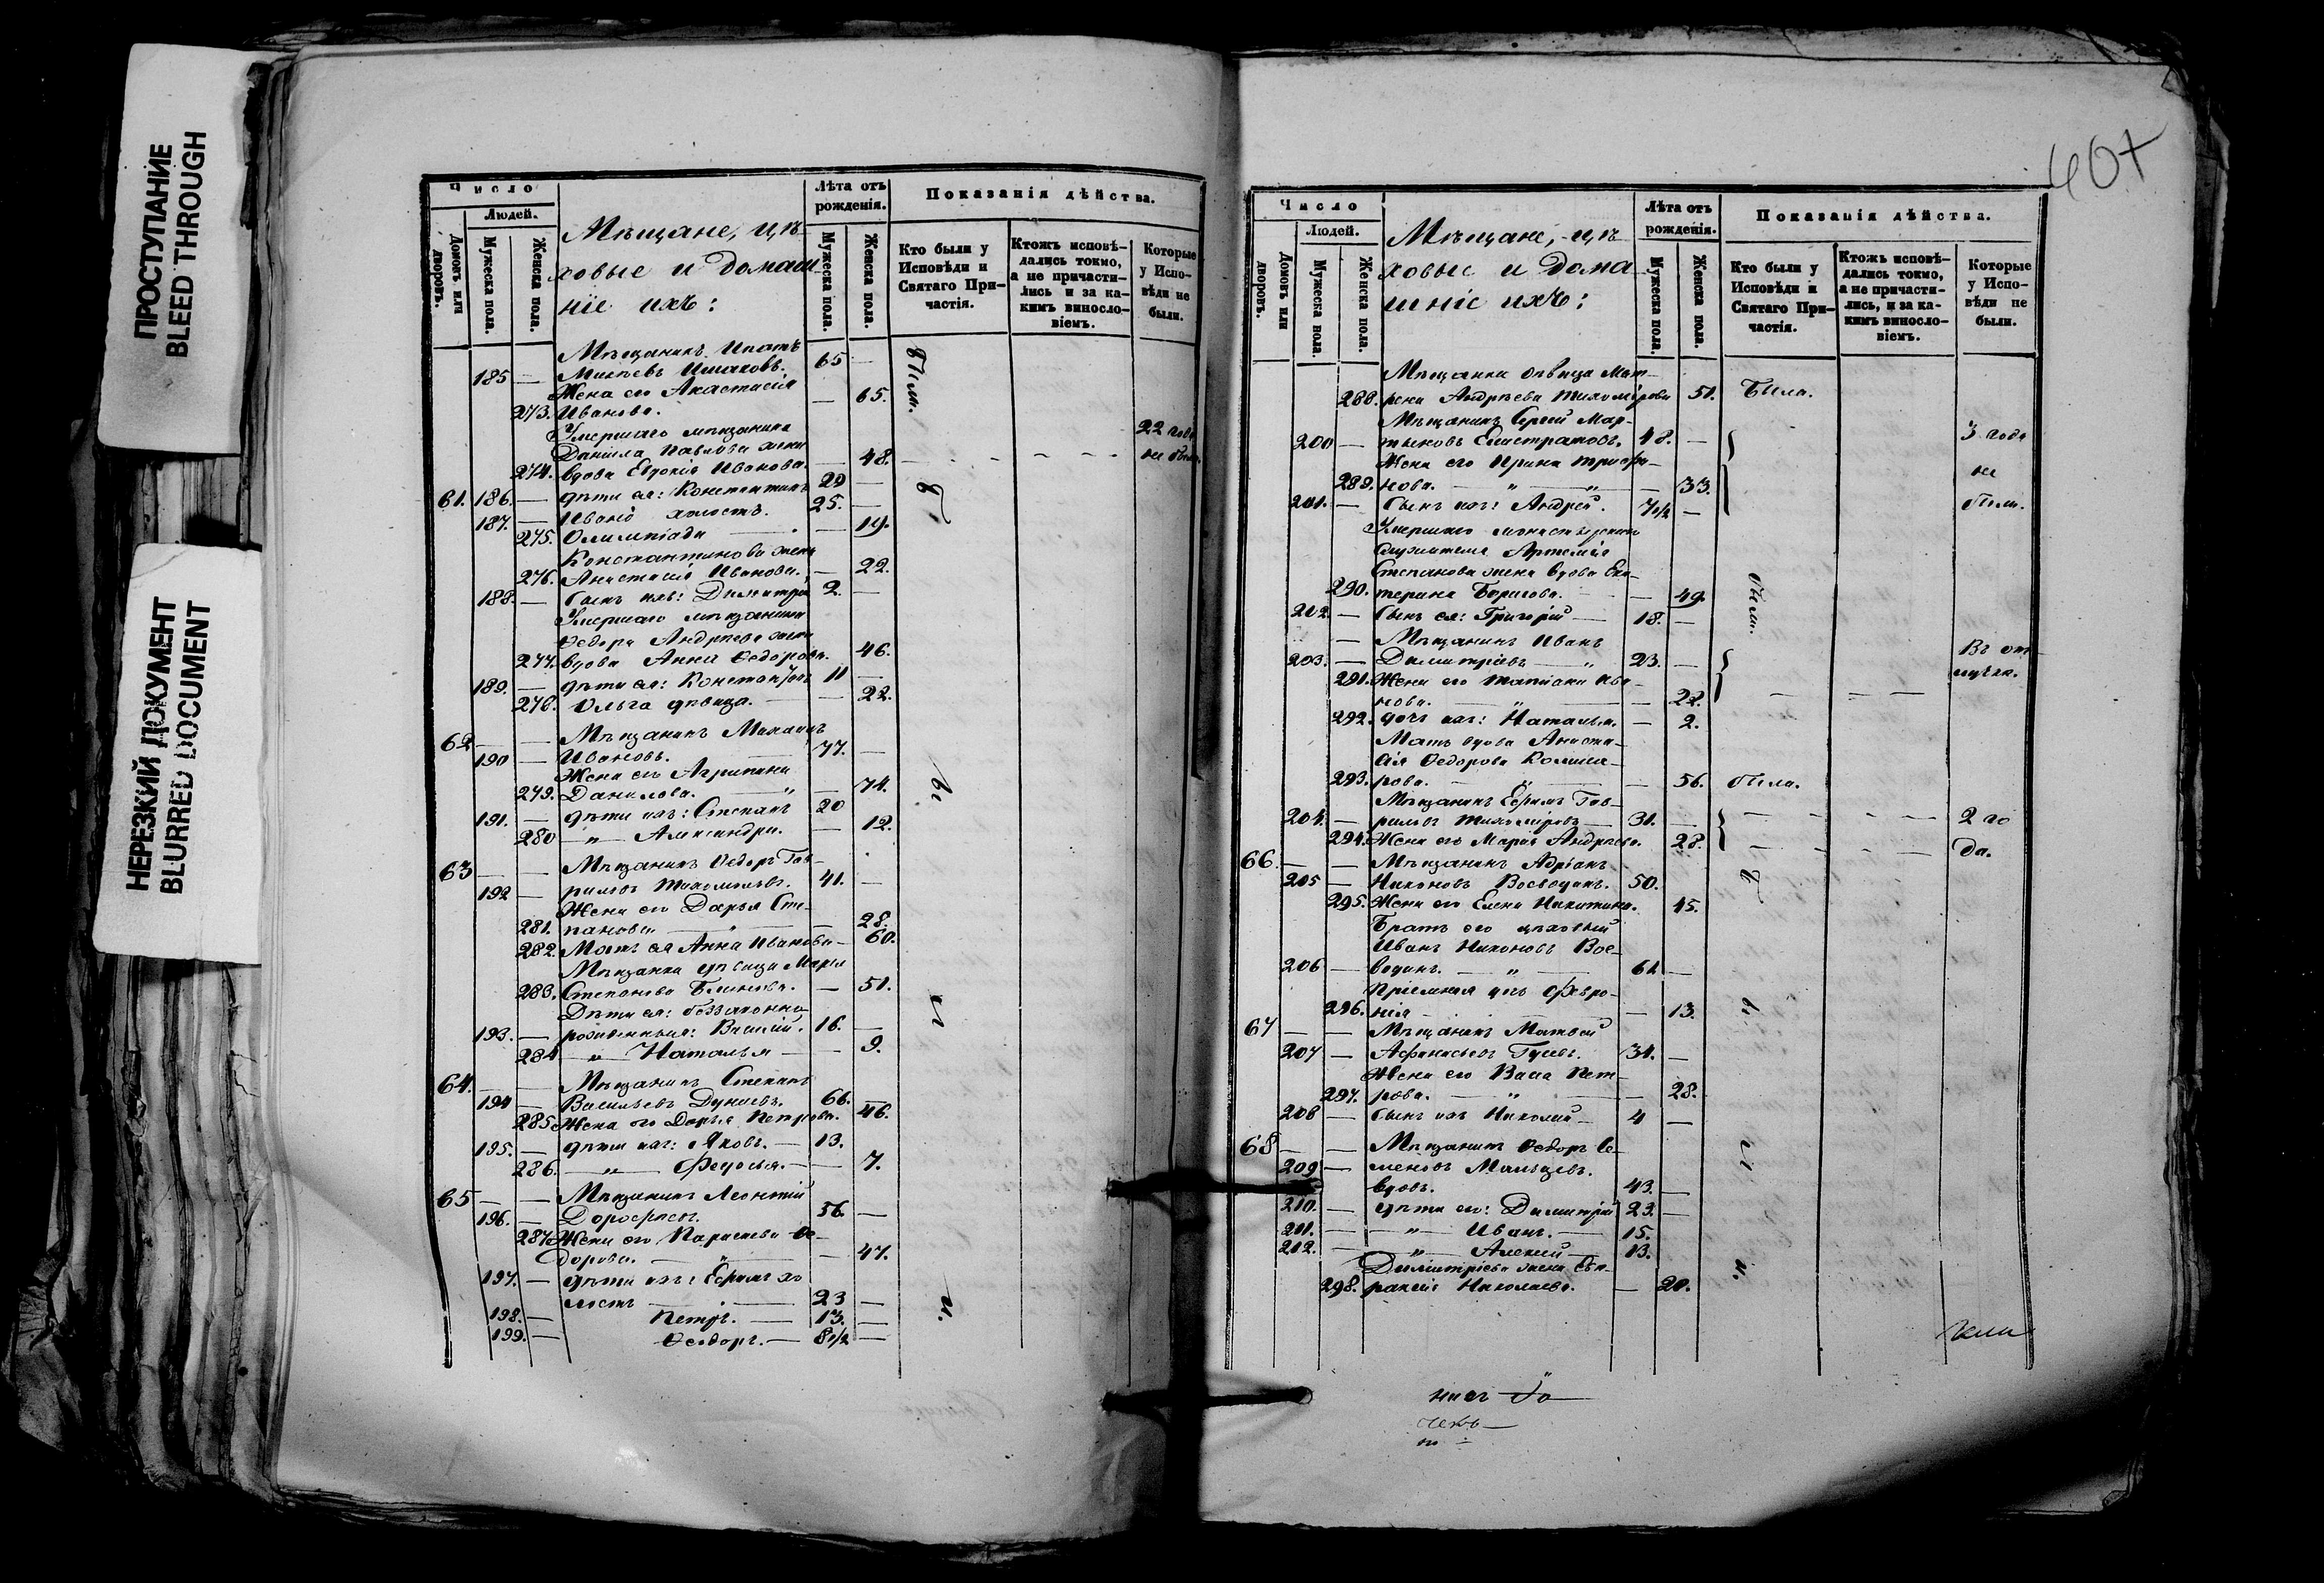 ПРОСТУПАНИЕ
BLEED THROUGH
НЕРЕЗКИЙ ДОКУМЕНТ
BLURRED DOCUMENT
Число
Людей.
Домовъ или дворовъ.
Мужеска пола.
Женска пола.
Мѣщане, цѣ-
ховые и домаш-
ніе ихъ:
Лѣта отъ рожденія.
Мужеска пола.
Женска пола.
Показанія дѣйства.
Кто были у Исповѣди и Святаго При-частія.
Ктожъ исповѣ-дались токмо, а не причасти-лись и за ка-кимъ винослο-віемъ.
Которые у Испо-вѣди не были.
Мѣщанинъ Ипатъ
185 — Михѣевъ 65 — были.
Жена его Анастасія
273. Иванова. — 65.
Умершаго мѣщанина
Даніила Павлова жена
274. вдова Евдокія Иванова. — 48. 22 года не была
61. 186. — дѣти ея: Константинъ 29 —
187. — Иванъ холостъ. 25. —
275. Олимпіада — 19.
Константинова жена
276. Анастасія Иванова. — 22.
188. — сынъ ихъ: Димитрій 2. —
Умершаго мѣщанина
Ѳедора Андреева жена
277. вдова Анна Ѳедорова. 46.
189. — дѣти ея: Константинъ 11 —
278. Ольга дѣвица. — 22.
62 — — Мѣщанинъ Михаилъ
190 — Ивановъ. 77. —
Жена его Агрипина
279. Данилова. — " — 74.
191. — дѣти ихъ: Степанъ 20
280 — " — Александра. — 12.
63 — — Мѣщанинъ Ѳедоръ Гав-
192 — риловъ 41. —
Жена его Дарья Сте-
281. панова — 28.
282. Мать ея Анна Иванова — 60.
Мѣщанка дѣвица Марья
283. Степанова Блинова. — 51.
Дѣти ея: беззаконно
193. — рожденныя: Василій. 16. —
284 " — Наталья — 9.
64. — — Мѣщанинъ Степанъ
194 — Васильевъ Дунаевъ. 66.
285. Жена его Дарья Петрова. 46.
195. — дѣти ихъ: Яковъ. — 13.
286. — " — Ѳедосья. — 7.
65 — — Мѣщанинъ Леонтій
196. — Дороѳеевъ. 56. —
287. Жена его Параскева Ѳе-
дорова. — " — 47.
197. — дѣти ихъ: Ефимъ хо-
лостъ — 23 —
198. — Петръ. — 13. —
199. — Ѳеодоръ. — 8 1/2 —
407
Число
Людей.
Домовъ или дворовъ.
Мужеска пола.
Женска пола.
Мѣщане, цѣ-
ховые и дома-
шніе ихъ:
Лѣта отъ рожденія.
Мужеска пола.
Женска пола.
Показанія дѣйства.
Кто были у Исповѣди и Святаго При-частія.
Ктожъ исповѣ-дались токмо, а не причасти-лись, и за ка-кимъ винослο-віемъ.
Которые у Испо-вѣди не были.
Мѣщанка дѣвица Мат-
288. рена Андреева Тихомірова 51. Была.
Мѣщанинъ Сергій Мар-
200 — тыновъ Елистратовъ, 48. — 3 года
Жена его Ирина Триѳи-
289. нова. — " — " — 33. не
201. — Сынъ ихъ: Андрей. 7 1/2 — были.
Умершаго монастырскаго
служителя Артемія
Степанова жена вдова Ека-
290. терина Борисова. — 49. были.
202. — Сынъ ея: Григорій — 18. —
— Мѣщанинъ Иванъ
203. — Димитріевъ — " 23. — Въ от-
291. Жена его Татіана Ива- лучкѣ.
нова. — " — 22.
292. дочь ихъ: Наталья. — 2.
Мать вдова Анаста-
сія Ѳедорова
293. рова. — " — 56. была.
Мѣщанинъ Ефимъ Гав-
204. — риловъ Тихоміровъ — 31. — 2 го
294. Жена его Марія Андреева. 28. да.
66. — — Мѣщанинъ Адріанъ
205 — Никоновъ Воеводинъ. 50.
295. Жена его Елена Никитина. 45.
Братъ его цѣховый
Иванъ Никоновъ Вое-
206 — водинъ. — " — 61 —
Пріемная дочь Февро-
296. нія — 13.
67 — — Мѣщанинъ Матвей
207 — Аѳанасьевъ Гусевъ. 34. —
Жена его Васса Пет-
297. рова. — " — 28.
208 — сынъ ихъ Николай — 4 —
68 — — Мѣщанинъ Ѳедоръ Се-
209 — меновъ Мальцевъ.
вдовъ. 43. —
210. — дѣти его: Димитрій 23. —
211. — " — Иванъ. — 15.
212. — " — Алексій — 13.
Димитріева жена Евп-
298. раксія Николаева. — 20.